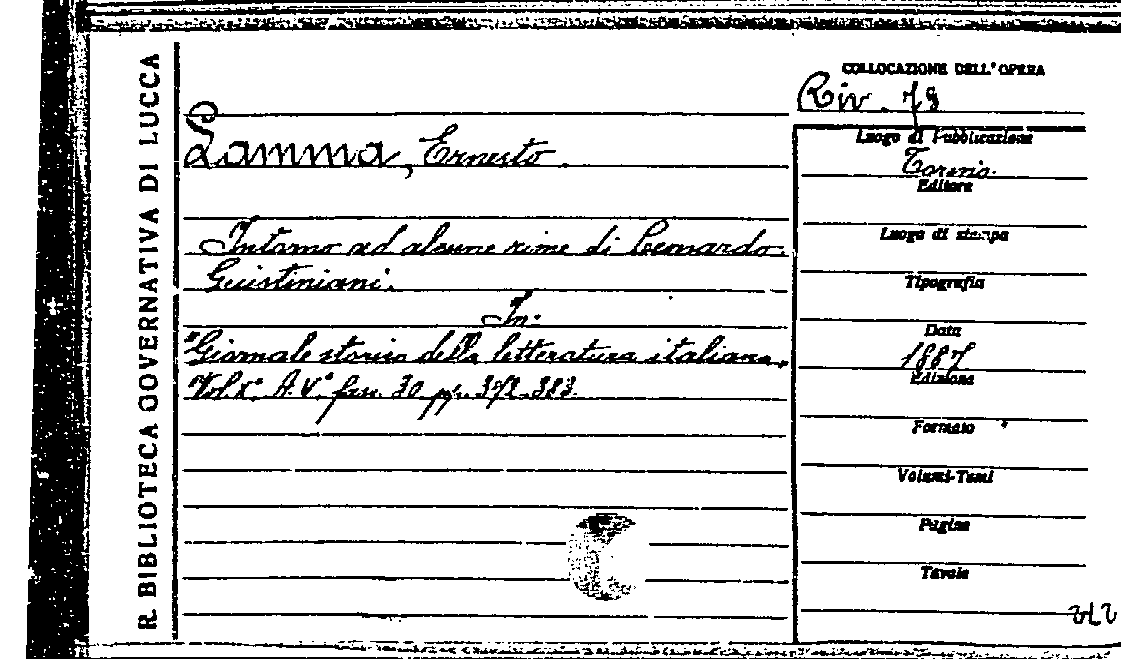 R. BIBLIOTECA GOVERNATIVA DI LUCCA
COLLOCAZIONE DELL'OPERA
Riv. 78
Lamma, Ernesto.
Intorno ad alcune rime di Leonardo
Giustiniani.
In:
"Giornale storico della letteratura italiana„
Vol. X° A. V° fasc. 30 pp. 372-383.
Luogo di Pubblicazione
Torino.
Editore
Luogo di stampa
Tipografia
Data
1887
Edizione
Formato
Volumi-Tomi
Pagine
Tavole